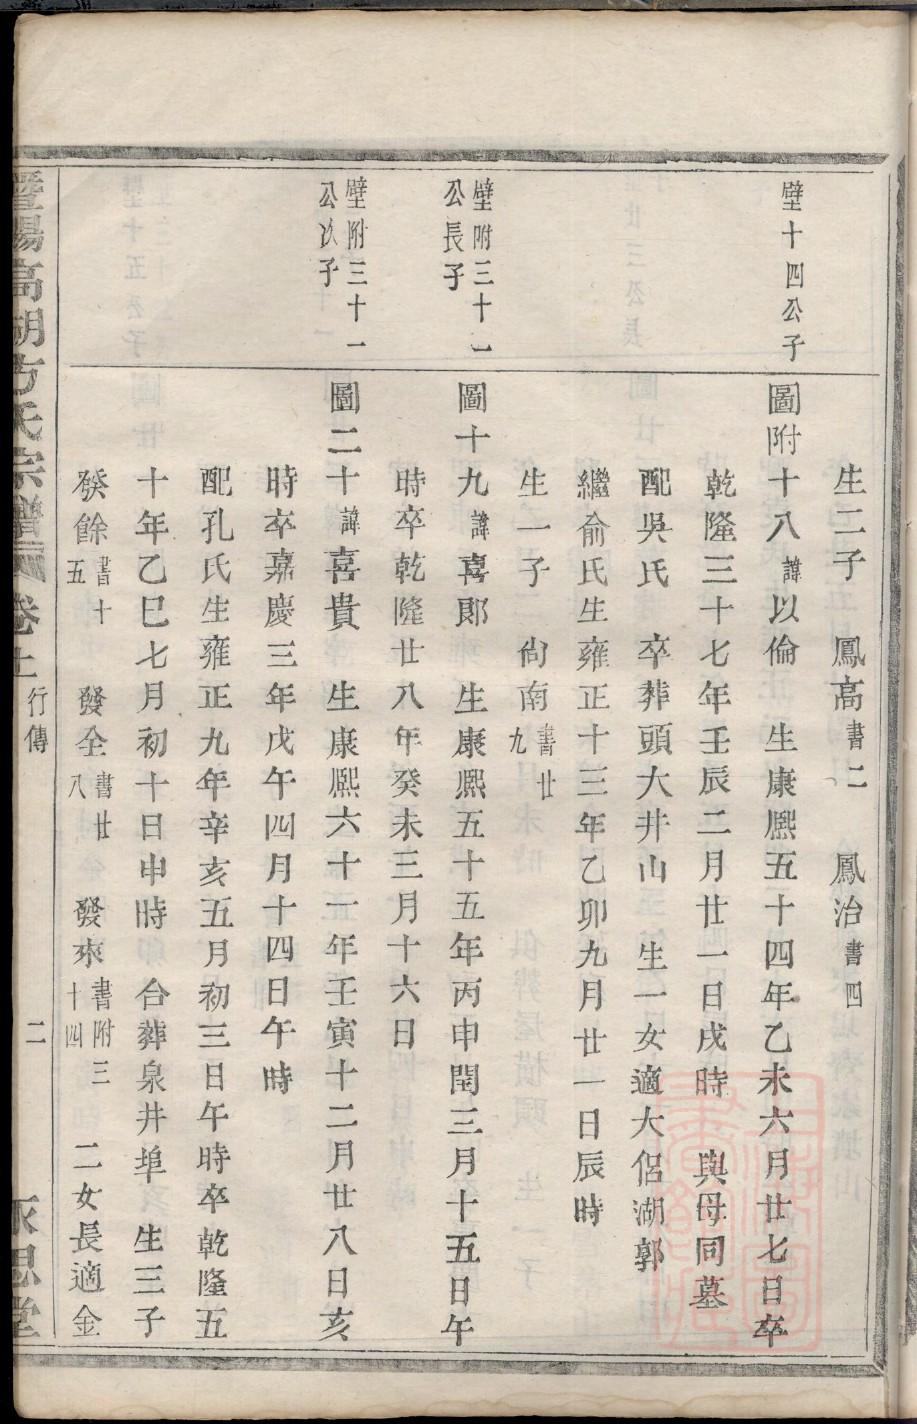 生二子　鳳高書二　鳳治書四
壁十四公子
圖附十八諱以倫　生康熙五十四年乙未六月廿七日卒
乾隆三十七年壬辰二月廿一日戌時　與母同墓
配吳氏　卒葬頭大井山　生一女適大侶湖郭
繼俞氏生雍正十三年乙卯九月廿一日辰時
生一子　尙南書廿九
壁附三十一公長子
圖十九諱喜郞　生康熙五十五年丙申閏三月十五日午
時卒乾隆廿八年癸未三月十六日
壁附三十一公次子
圖二十諱喜貴　生康熙六十一年壬寅十二月廿八日亥
時卒嘉慶三年戊午四月十四日午時
配孔氏生雍正九年辛亥五月初三日午時卒乾隆五
十年乙巳七月初十日申時　合葬泉井埠　生三子
發餘書十五　發全書廿八　發來書附三十四　二女長適金
暨陽高湖方氏宗譜　卷上　行傳　二　永思堂